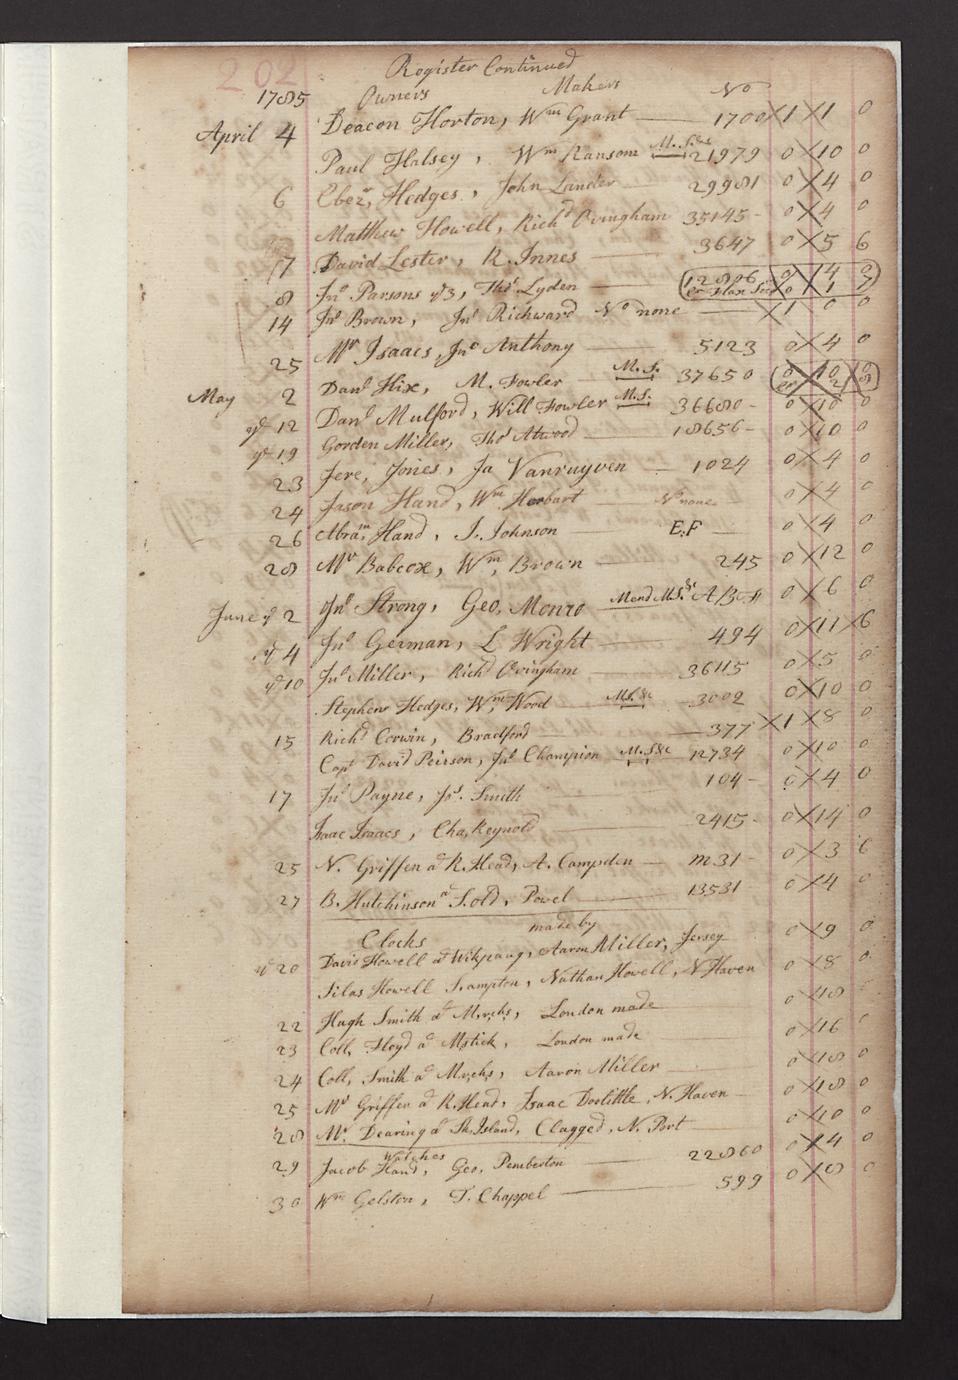 202
Register Continued
1785 Owners Makers No
April 4 Deacon Horton, Wm Grant 1700 1 1 0
Paul Halsey, Wm Ransom M.S&c 21979 0 10 0
6 Ebezr Hedges, John Lander 29981 0 4 0
Matthew Howell, Richd Ovingham 35145 - 0 4 0
7 David Lester, R. Innes 3647 0 5 6
8 Jno Parsons yd 3, Thos Lyden 12806 0 14 0
er Flax Seed 0 1 7
14 Jno Brown, Jno Richward No none 1 0 0
25 Mr Isaacs, Jno Anthony 5123 0 4 0
May 2 Danl Hix, M. Fowler M.S. 37650 0 10 0
er 2 8
yd 12 Danl Mulford, Will Fowler M.S. 36680 - 0 10 0
yd 19 Gorden Miller, Thos Atwood 18656 - 0 10 0
23 Jere, Jones, Ja Vanruyven 1024 0 4 0
24 Jason Hand, Wm Herbart No none 0 4 0
26 Abram Hand, J. Johnson E.F 0 4 0
28 Mr Babcox, Wm, Brown 245 0 12 0
June yd 2 Jno Strong, Geo, Monro Mend M.S.&c A/B 0 6 0
yd 4 Jno German, L Wright 494 0 11 6
yd 10 Jno Miller, Richd Ovingham 36115 0 5 0
Stephen Hedges, Wm, Wood M.S. &c 3002 0 10 0
15 Richd Corwin, Bradford 377 1 8 0
Capt David Peirson, Jno Champion M.S&c 12734 0 10 0
17 Jno Payne, Jos. Smith 104 - 0 4 0
Isaac Isaacs, Cha, Reynold 2415 - 0 14 0
25 N. Griffen at R. Head, A. Campden m 31 - 0 3 6
27 B. Hutchinson at S.old, Powel 13531 0 4 0
Clocks made by
yd 20 David Howell at Wikpaug, Aaron Miller, Jersey 0 9 0
Silas Howell Sampton, Nathan Howell, N Haven 0 8 0
22 Hugh Smith at Mrchs, London made 0 18
23 Coll, Floyd at Mstick, London made 0 16 0
24 Coll, Smith at Mrchs, Aaron Miller 0 18 0
25 Mr Griffen at R. Head, Isaac Doolittle, N. Haven 0 18 0
28 Mr. Dearing at Sh, Island, Clagged, N. Port 0 10 0
Watches
29 Jacob Hand, Geo, Pemberton 22860 0 4 0
30 Wm Gelston, T. Chappel 599 0 8 0